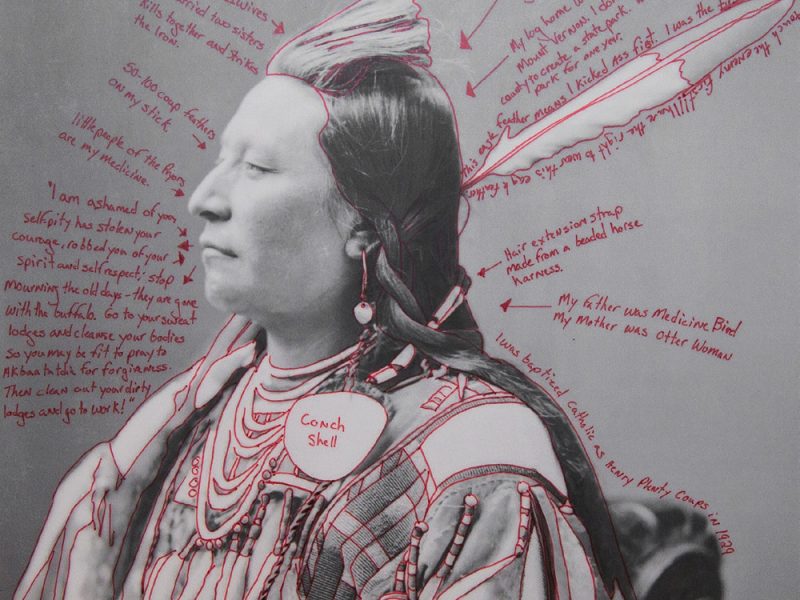 wives
married two sisters
Kills together and strikes
the Iron.
50-100 coup feathers
on my stick
little people of the Pryors
are my medicine.
"I am ashamed of you,
self-pity has stolen your
courage, robbed you of your
spirit and self respect; stop
mourning the old days - they are gone
with the buffalo. Go to your sweat
lodges and cleanse your bodies
so you may be fit to pray to
for forgiveness.
Then clean out your dirty
lodges and go to work!"
My log home
Mount Vernon. I
county to create a state park.
park for one year.
this eagle feather means I kicked ass first. I was the
the enemy first!!! I have the right
to wear this eagle feather
Hair extension strap
made from a beaded horse
harness.
My Father was Medicine Bird
My Mother was Otter Woman
I was baptized Catholic as Henry Plenty Coups in 1929
Conch
Shell